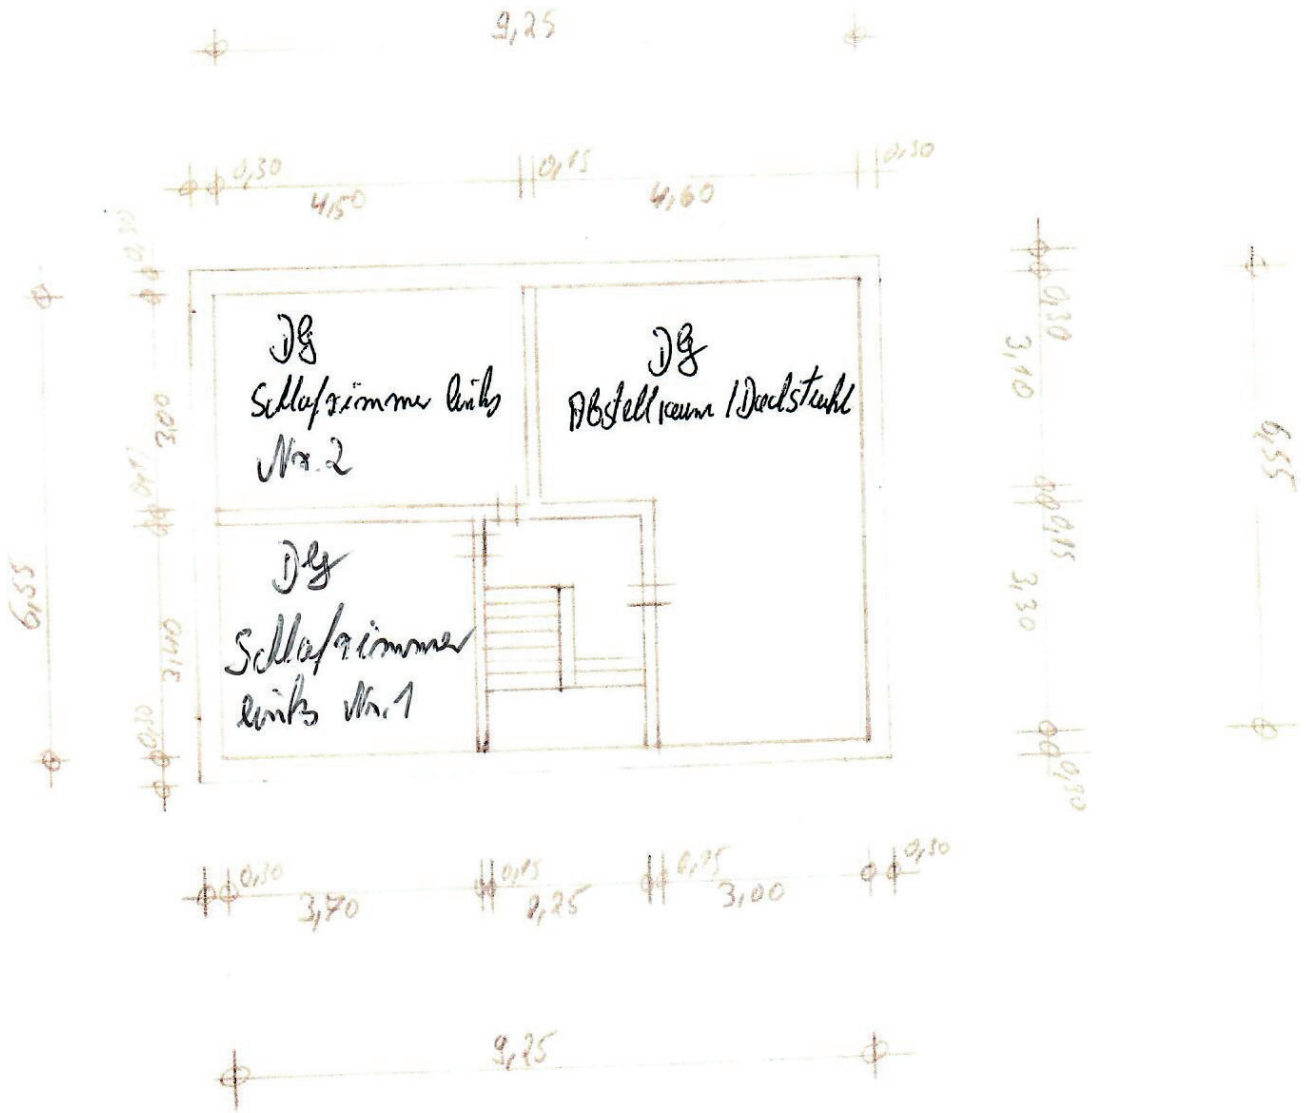 9,25
0,30
0,15
0,30
4,50
4,60
0,30
3,00
3,40
0,30
6,55
DG
Schlafzimmer links
Nr. 2
DG
Abstellraum / Dachstuhl
DG
Schlafzimmer
links Nr. 1
0,30
3,10
0,15
3,30
0,30
6,55
0,30
0,15
0,15
0,30
3,70
3,00
9,25